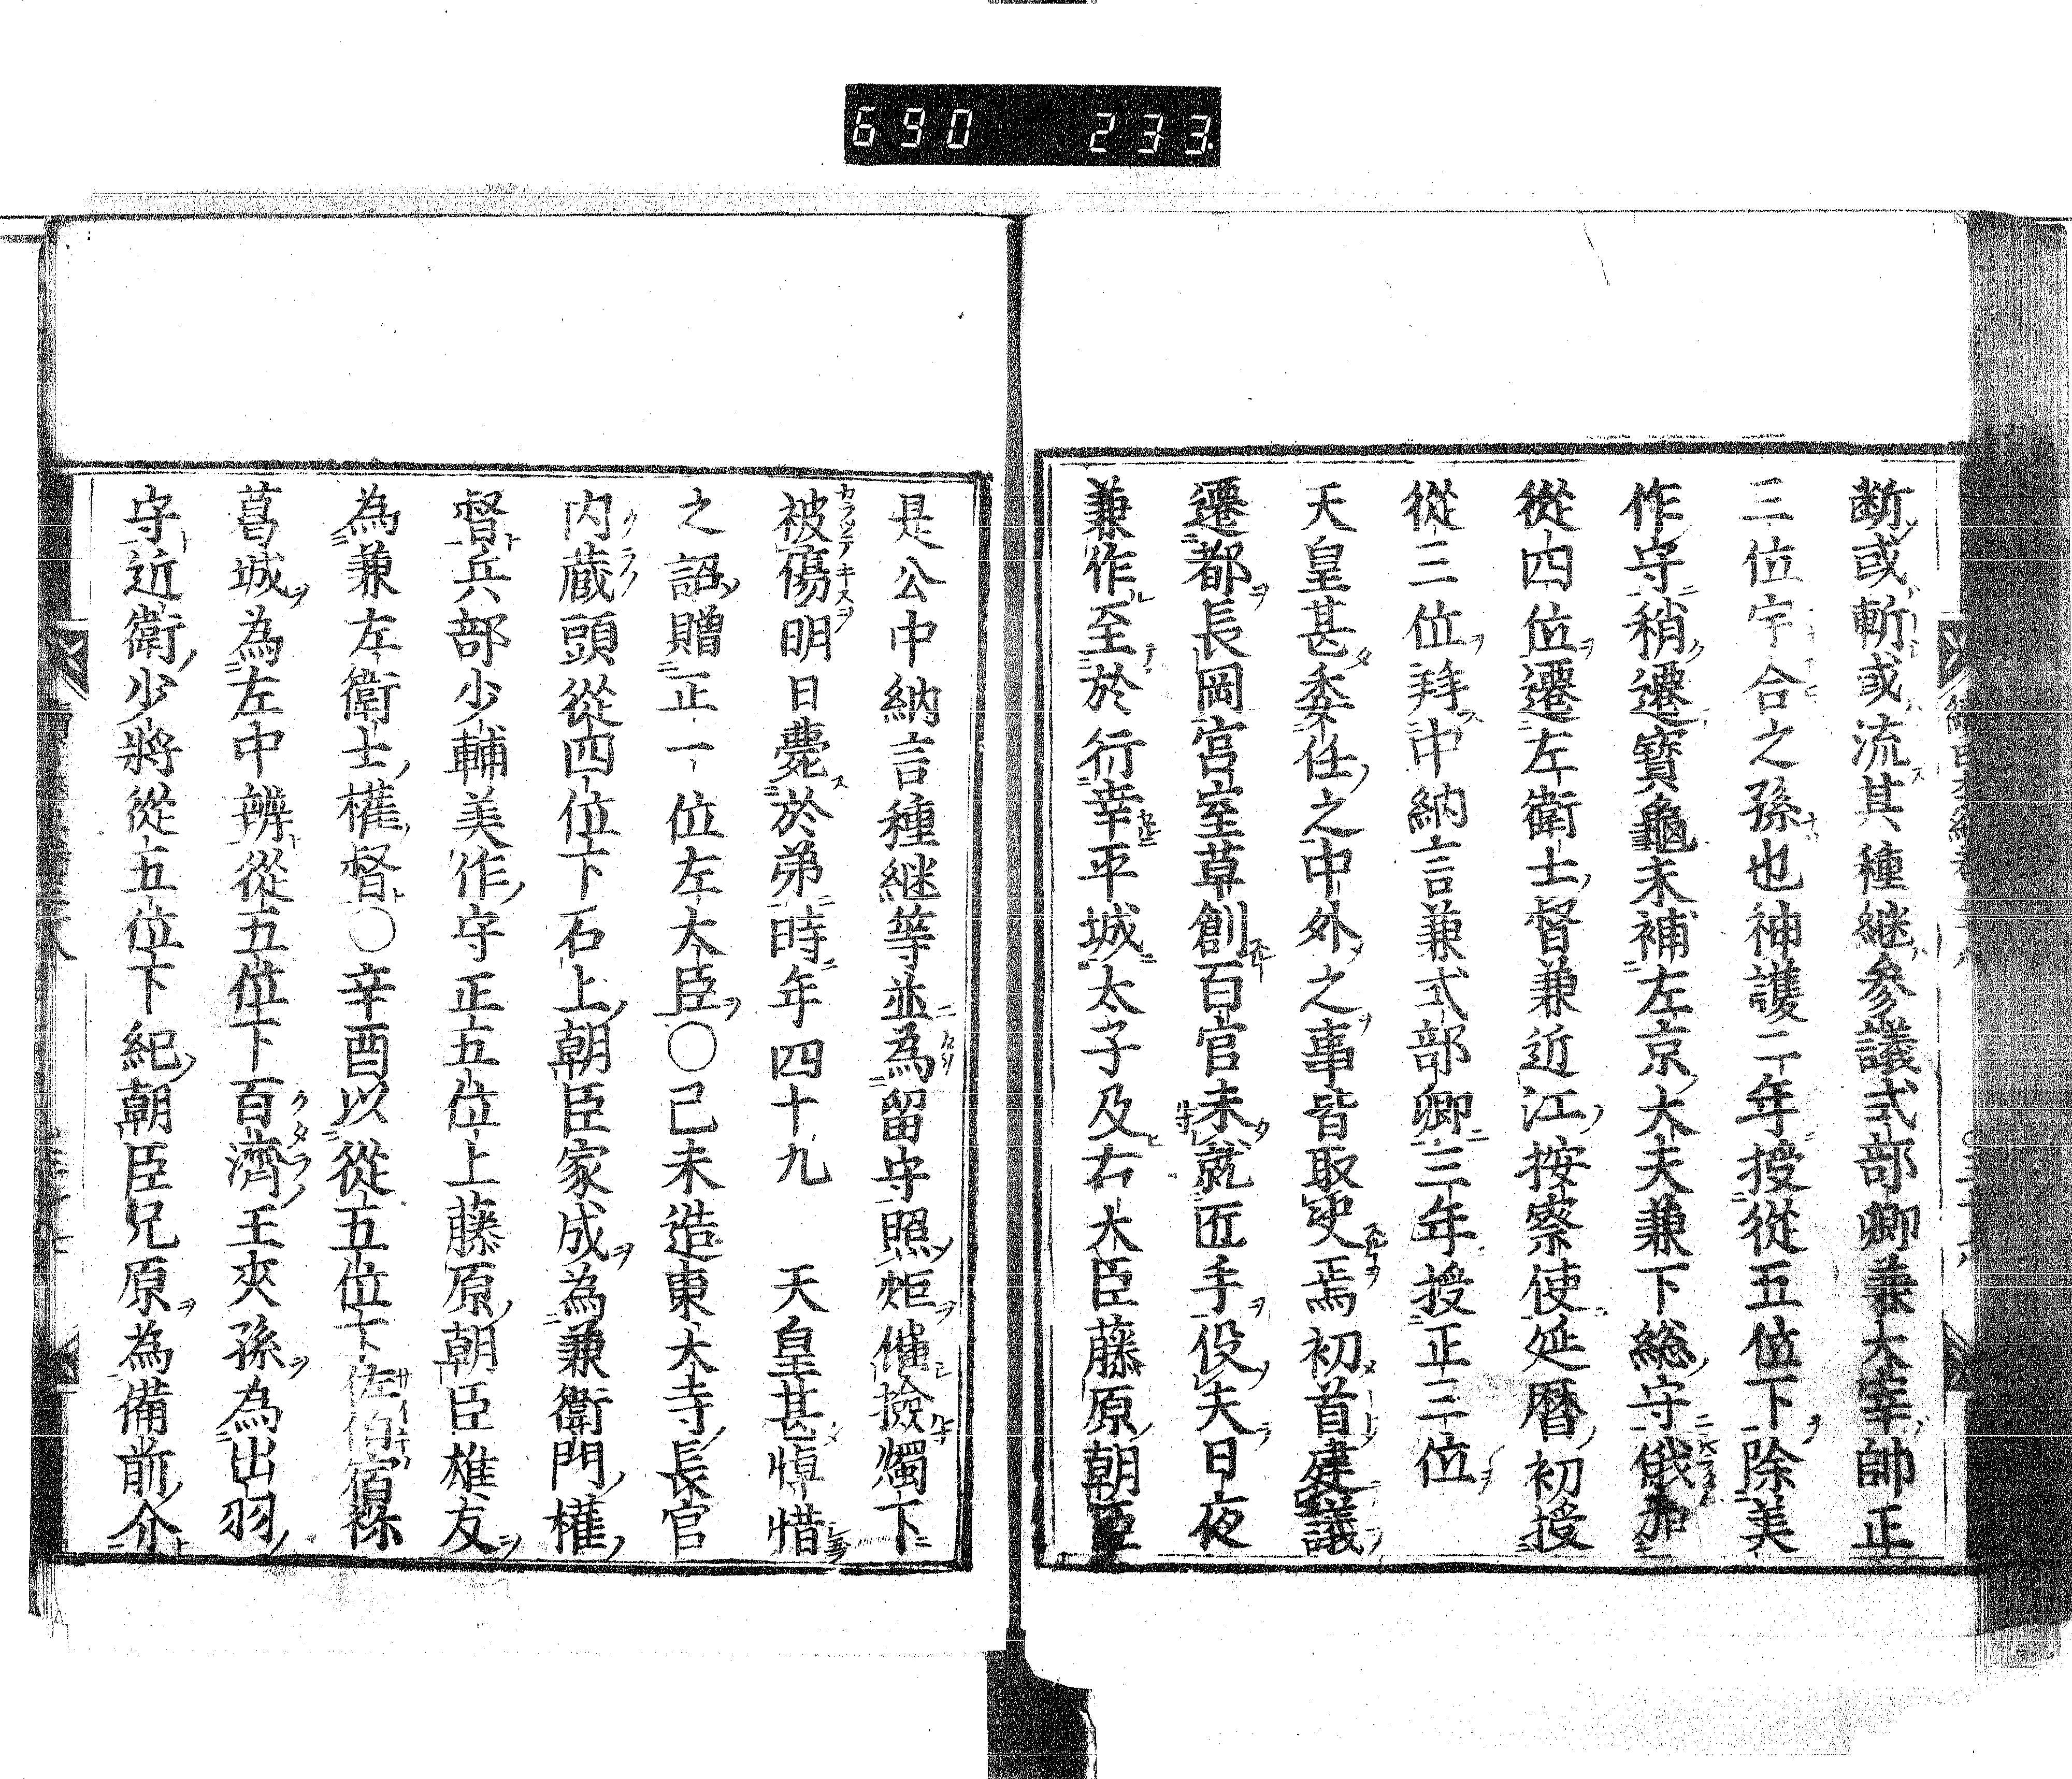 690 233
断或斬或流其種継參議式部卿兼大宰帥正
三位宇合之孫也神護二年授從五位下除美
作守稍遷寶龜末補左京大夫兼下総守俄加
從四位遷左衛士督兼近江按察使延暦初授
從三位拜中納言兼式部卿三年授正三位
天皇甚委任之中外之事皆取决焉初首建議
遷都長岡宮室草創百官未就匠手役夫日夜
兼作至於行幸平城太子及右大臣藤原朝臣
是公中納言種継等並為留守照炬催撿燭下
被傷明日薨於弟時年四十九 天皇甚悼惜
之詔贈正一位左大臣〇己未造東大寺長官
内蔵頭從四位下石上朝臣家成為兼衛門權
督兵部少輔美作守正五位上藤原朝臣雄友
為兼左衛士權督〇辛酉以從五位下佐伯宿祢
葛城為左中辨從五位下百濟王夾孫為出羽
守近衛少將從五位下紀朝臣兄原為備前介